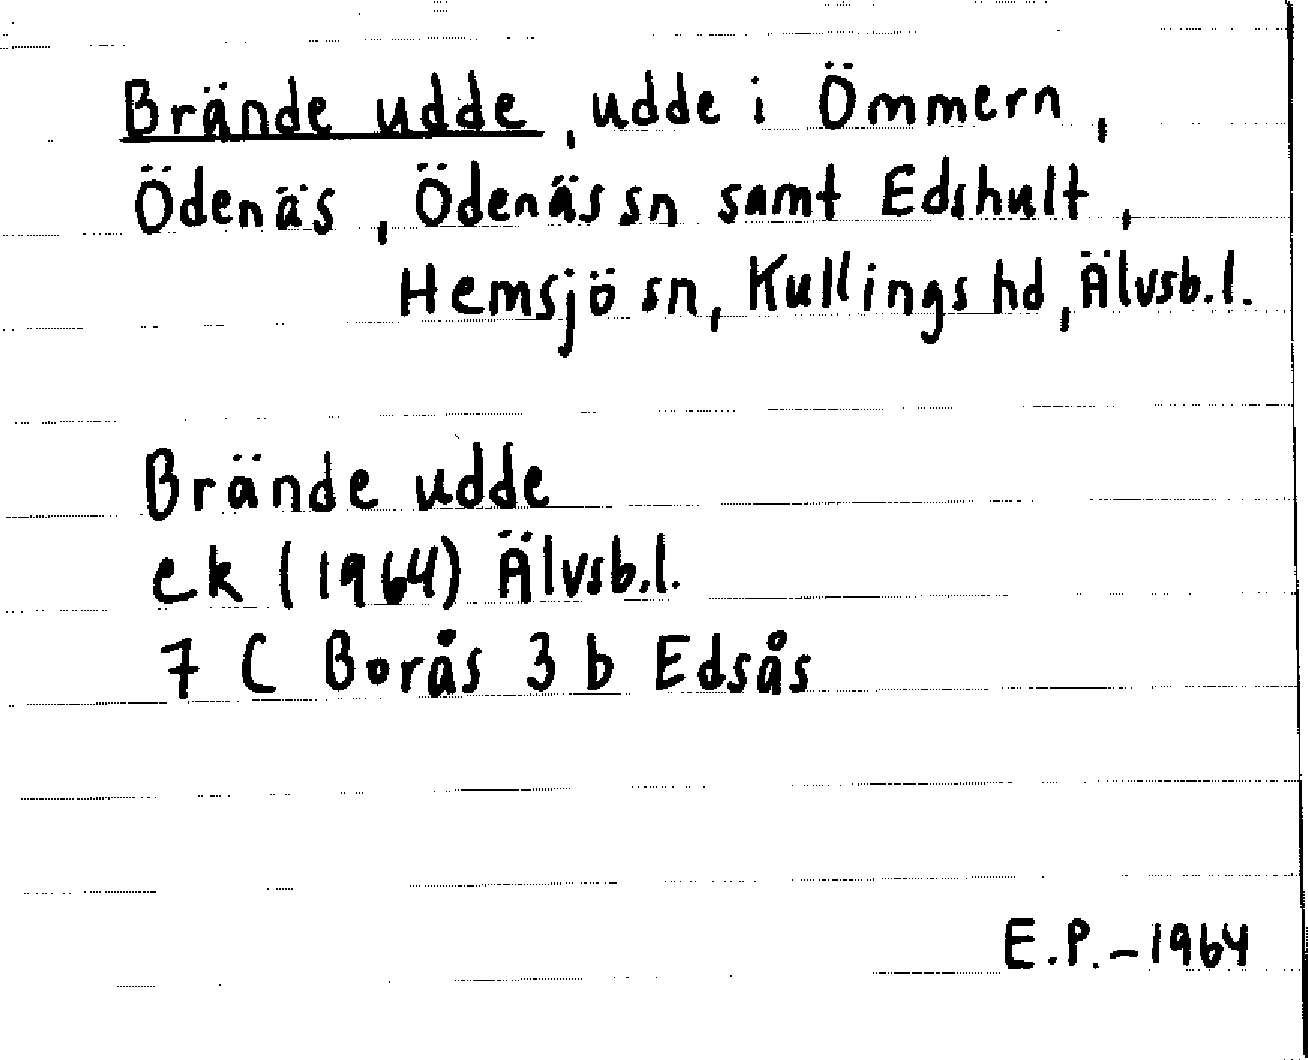 Brände udde, udde i Ömmern,
Ödenäs, Ödenäs sn samt Edshult,
Hemsjö sn, Kullings hd, Älvsb.l.
Brände udde
ek (1964) Älvsb.l.
7 C Borås 3 b Edsås
E.P.-1964